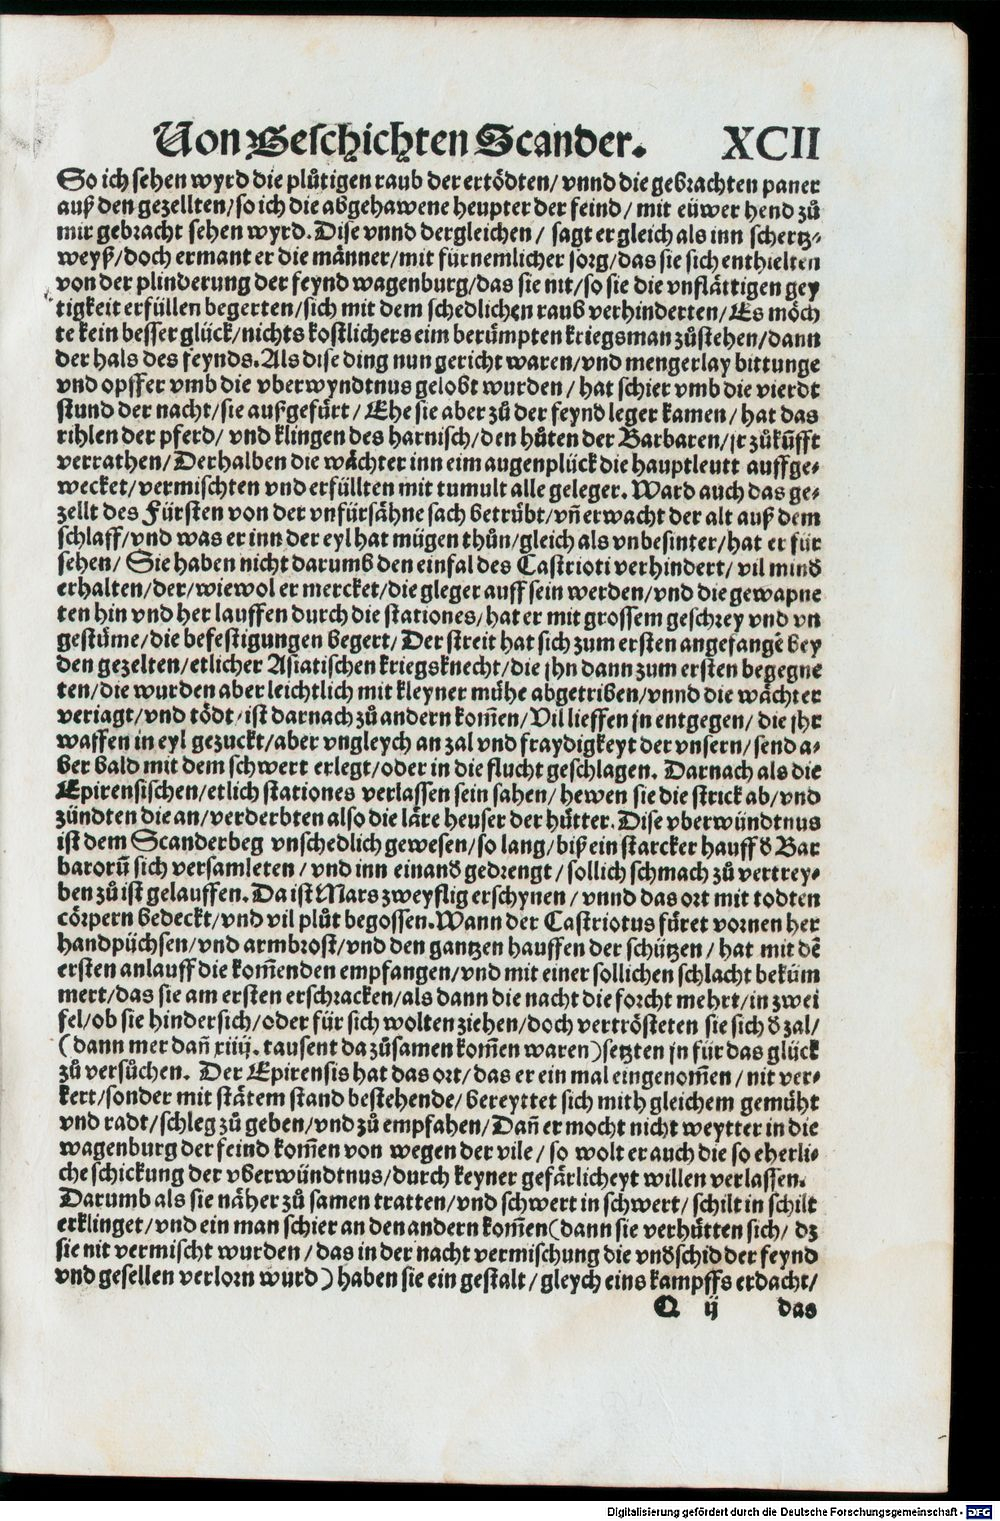 Von Geschichten Scander. XCII
So ich sehen wyrd die plůtigen raub der ertödten/ vnnd die gebrachten paner
auß den gezellten/ so ich die abgehawene heupter der feind/ mit eüwer hend zů
mir gebracht sehen wyrd. Dise vnnd dergleichen/ sagt er gleich als inn schertz⸗
weyß/ doch ermant er die männer/ mit fürnemlicher sorg/ das sie sich enthielten
von der plinderung der feynd wagenburg/ das sie nit/ so sie die vnflättigen gey
tigkeit erfüllen begerten/ sich mit dem schedlichen raub verhinderten/ Es möch
te kein besser glück/ nichts kostlichers eim berümpten kriegsman zůstehen/ dann
der hals des feynds. Als dise ding nun gericht waren/ vnd mengerlay bittunge
vnd opffer vmb die vberwyndtnus gelobt wurden/ hat schier vmb die vierdt
stund der nacht/ sie außgefürt/ Ehe sie aber zů der feynd leger kamen/ hat das
rihlen der pferd/ vnd klingen des harnisch/ den hůten der Barbaren/ jr zůkũfft
verrathen/ Derhalben die wächter inn eim augenplück die hauptleutt auffge⸗
wecket/ vermischten vnd erfüllten mit tumult alle geleger. Ward auch das ge⸗
zellt des Fürsten von der vnfürsähne sach betrübt/ vñ erwacht der alt auß dem
schlaff/ vnd was er inn der eyl hat mügen thůn/ gleich als vnbesinter/ hat er für
sehen/ Sie haben nicht darumb den einfal des Castrioti verhindert/ vil mind
erhalten/ der/ wiewol er mercket/ die gleger auff sein werden/ vnd die gewapne
ten hin vnd her lauffen durch die stationes/ hat er mit grossem geschrey vnd vn
gestüme/ die befestigungen begert/ Der streit hat sich zum ersten angefangē bey
den gezelten/ etlicher Asiatischen kriegsknecht/ die jhn dann zum ersten begegne
ten/ die wurden aber leichtlich mit kleyner mühe abgetriben/ vnnd die wächter
veriagt/ vnd tödt/ ist darnach zů andern kom̄en/ Vil lieffen jn entgegen/ die jhr
waffen in eyl gezuckt/ aber vngleych an zal vnd fraydigkeyt der vnsern/ send a⸗
ber bald mit dem schwert erlegt/ oder in die flucht geschlagen. Darnach als die
Epirensischen/ etlich stationes verlassen sein sahen/ hewen sie die strick ab/ vnd
zündten die an/ verderbten also die läre heuser der hütter. Dise vberwündtnus
ist dem Scanderbeg vnschedlich gewesen/ so lang/ biß ein starcker hauff ð Bar
barorũ sich versamleten/ vnd inn einanð gedrengt/ sollich schmach zů vertrey⸗
ben zů ist gelauffen. Da ist Mars zweyflig erschynen/ vnnd das ort mit todten
cörpern bedeckt/ vnd vil plůt begossen. Wann der Castriotus füret vornen her
handpüchsen/ vnd armbrost/ vnd den gantzen hauffen der schützen/ hat mit dē
ersten anlauff die kom̄enden empfangen/ vnd mit einer sollichen schlacht beküm
mert/ das sie am ersten erschracken/ als dann die nacht die forcht mehrt/ in zwei
fel/ ob sie hindersich/ oder für sich wolten ziehen/ doch vertrösteten sie sich ð zal/
(dann mer dañ xiiij. tausent da zůsamen kom̄en waren) setzten jn für das glück
zů versůchen. Der Epirensis hat das ort/ das er ein mal eingenom̄en/ nit ver⸗
kert/ sonder mit stätem stand bestehende/ bereyttet sich mith gleichem gemüht
vnd radt/ schleg zů geben/ vnd zů empfahen/ Dañ er mocht nicht weytter in die
wagenburg der feind kom̄en von wegen der vile/ so wolt er auch die so eherli⸗
che schickung der vberwündtnus/ durch keyner gefärlicheyt willen verlassen.
Darumb als sie näher zů samen tratten/ vnd schwert in schwert/ schilt in schilt
erklinget/ vnd ein man schier an den andern kom̄en (dann sie verhütten sich/ dz
sie nit vermischt wurden/ das in der nacht vermischung die vnðschid der feynd
vnd gesellen verlorn wurd) haben sie ein gestalt/ gleych eins kampffs erdacht/
Q ij das
Digitalisierung gefördert durch die Deutsche Forschungsgemeinschaft - DFG